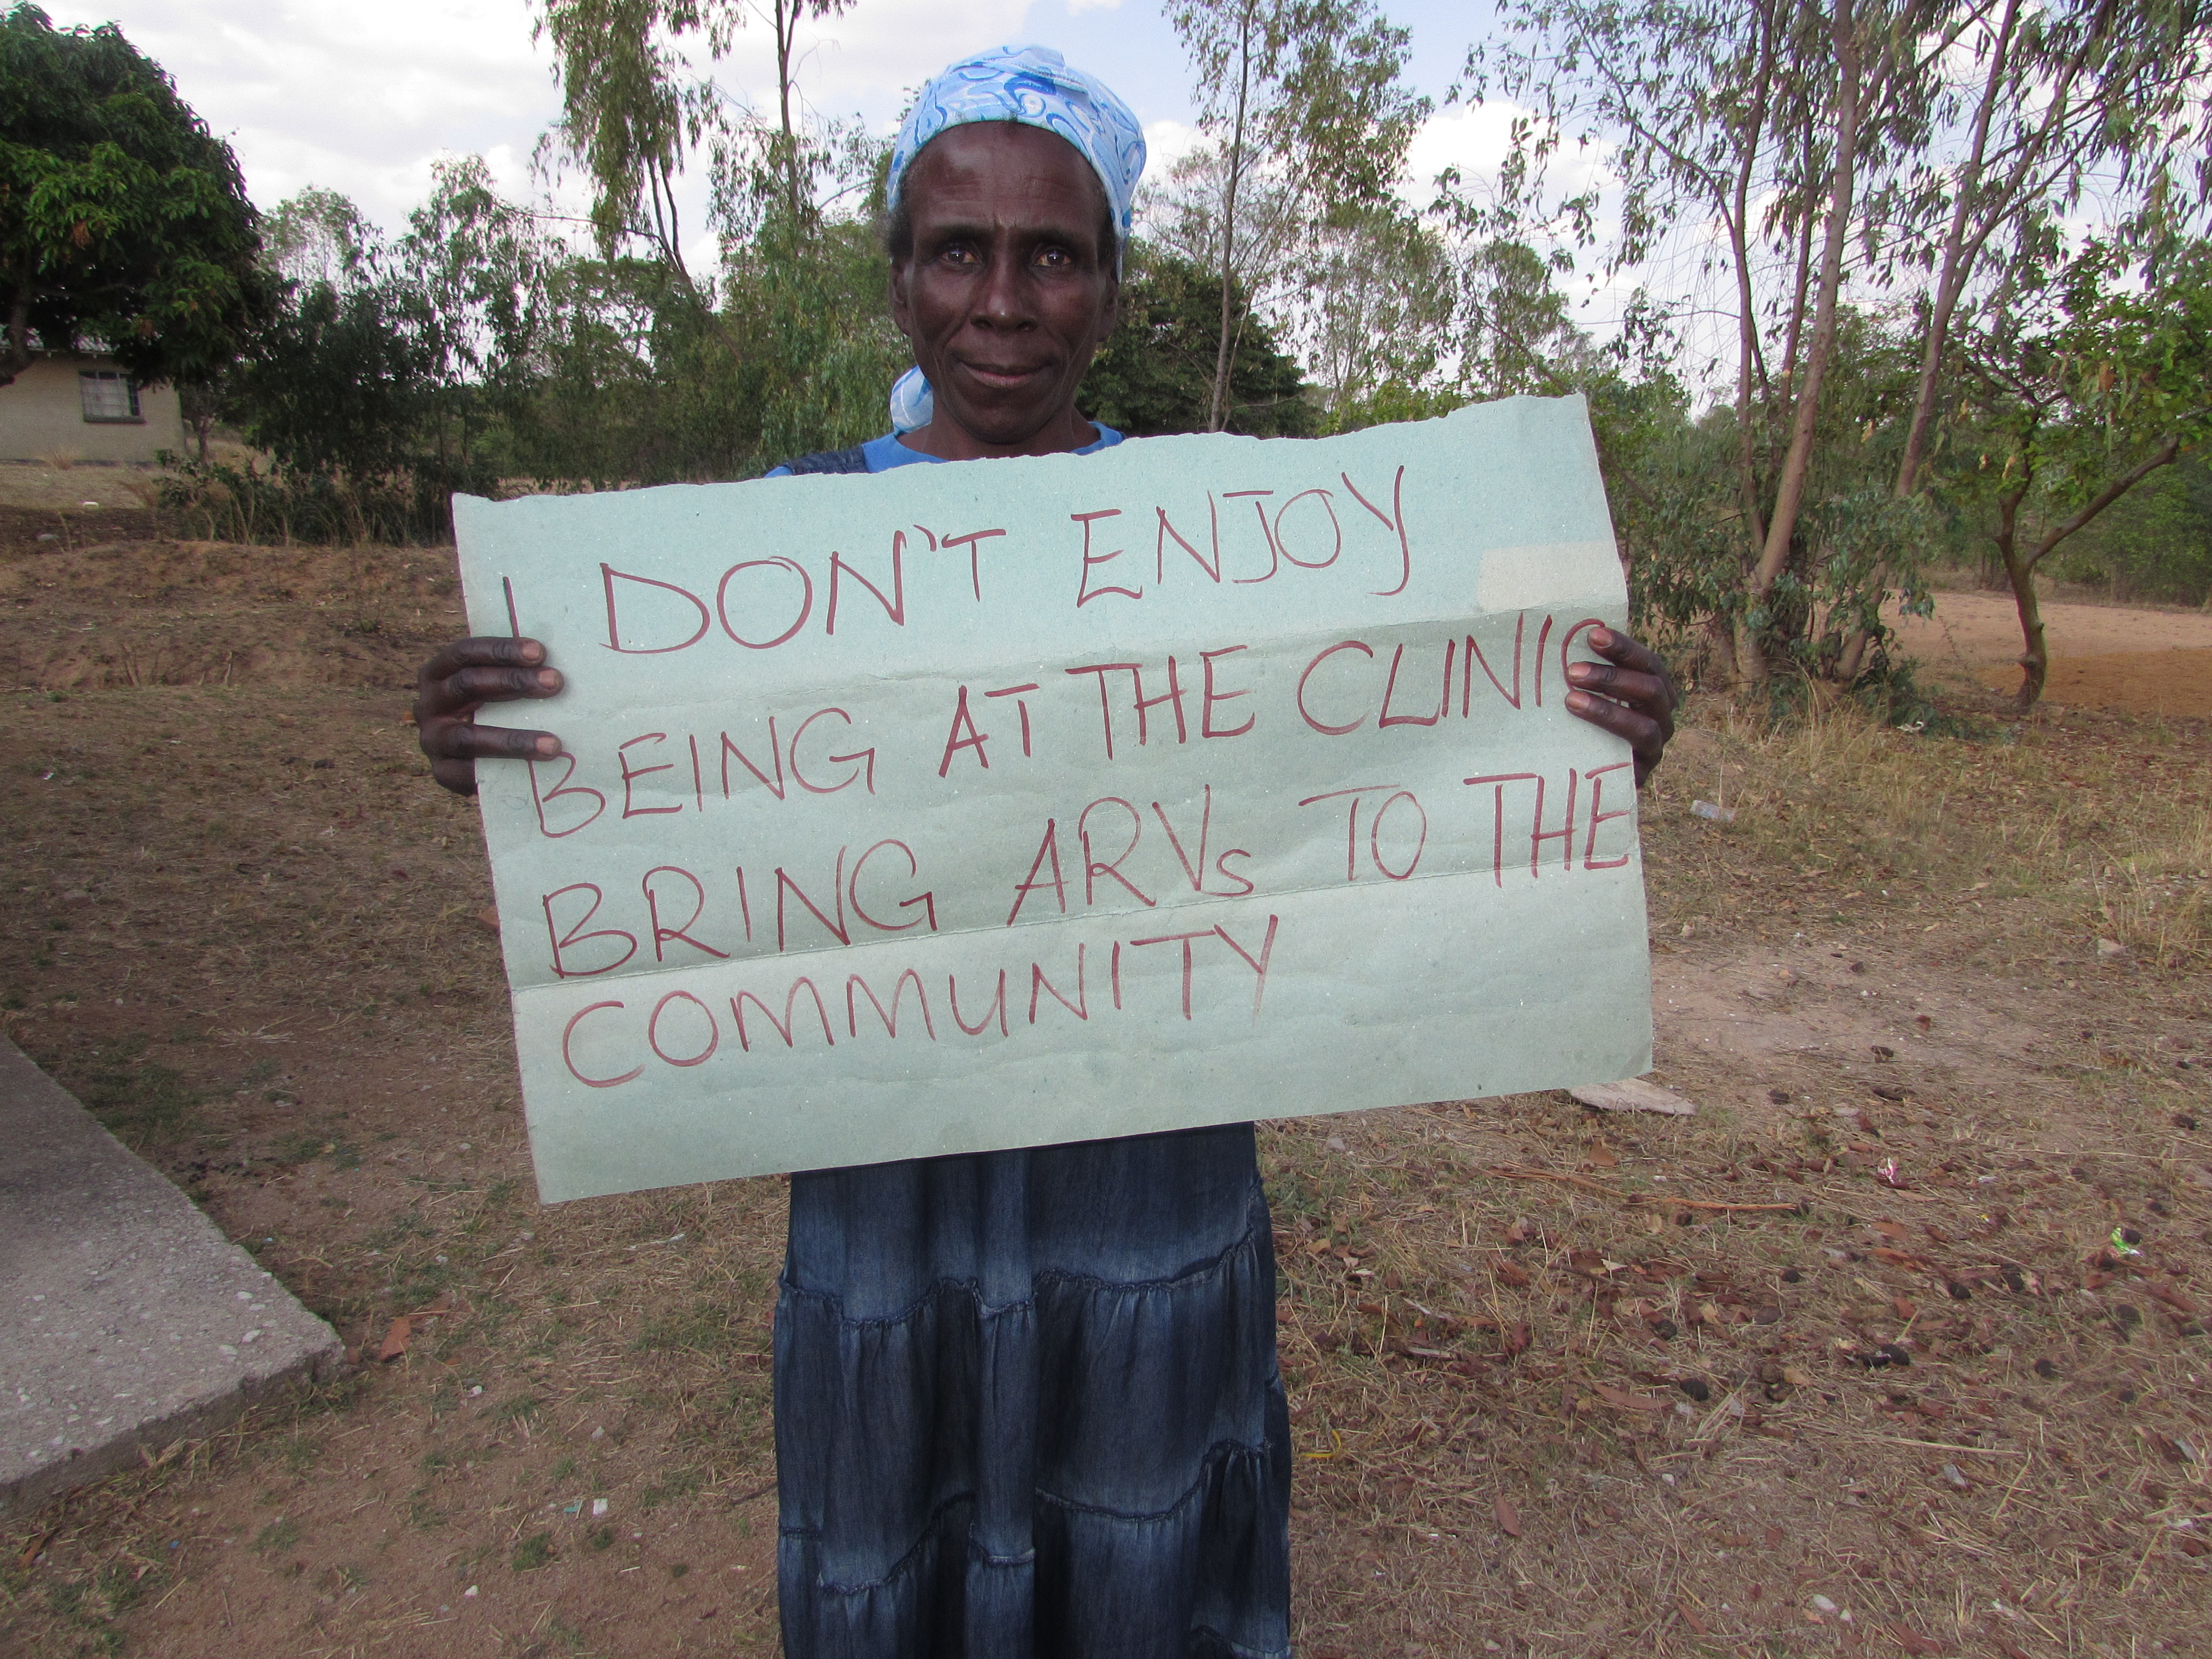 I DON'T ENJOY
BEING AT THE CLINIC
BRING ARVs TO THE
COMMUNITY